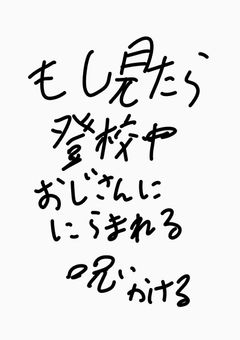 もし見たら
登校中
おじさんに
にらまれる
呪いかける